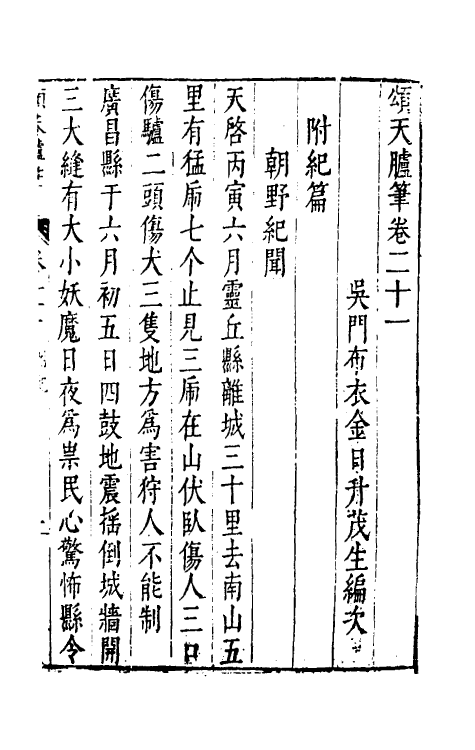 頌天臚筆卷二十一
吳門布衣金日升茂生編次
附紀篇
朝野紀聞
天啓丙寅六月靈丘縣離城三十里去南山五
里有猛乕七个止見三乕在山伏臥傷人三口
傷驢二頭傷犬三隻地方爲害狩人不能制
廣昌縣于六月初五日四鼓地震揺倒城牆開
三大縫有大小妖魔日夜爲祟民心驚怖縣令